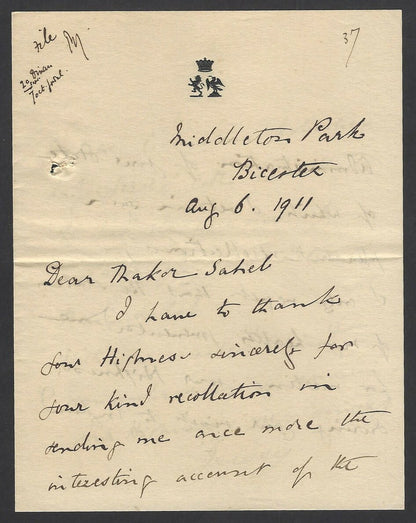 File
37
Middleton Park
Bicester
Aug 6. 1911
Dear Thakor Saheb
I have to thank
your Highness sincerely for
your kind recollation in
sending me once more the
interesting account of the